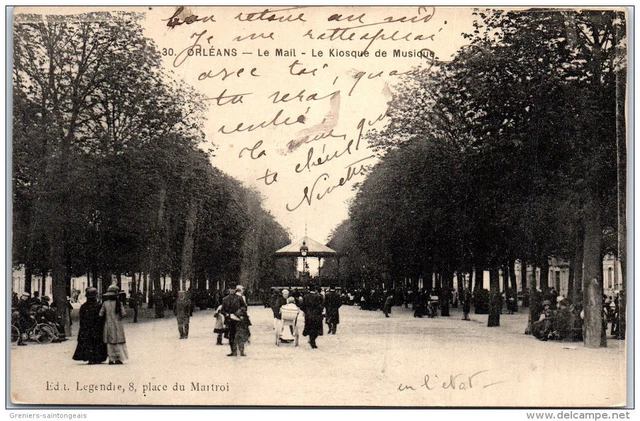 bon retour au nid
30. ORLÉANS — Le Mail - Le Kiosque de Musique
Je me rattrapai
avec toi, quand
tu seras
rendre
la que
te chérit
Ninette
Edit. Legendre, 8, place du Martroi
en l'état
Greniers-saintongeais
www.delcampe.net